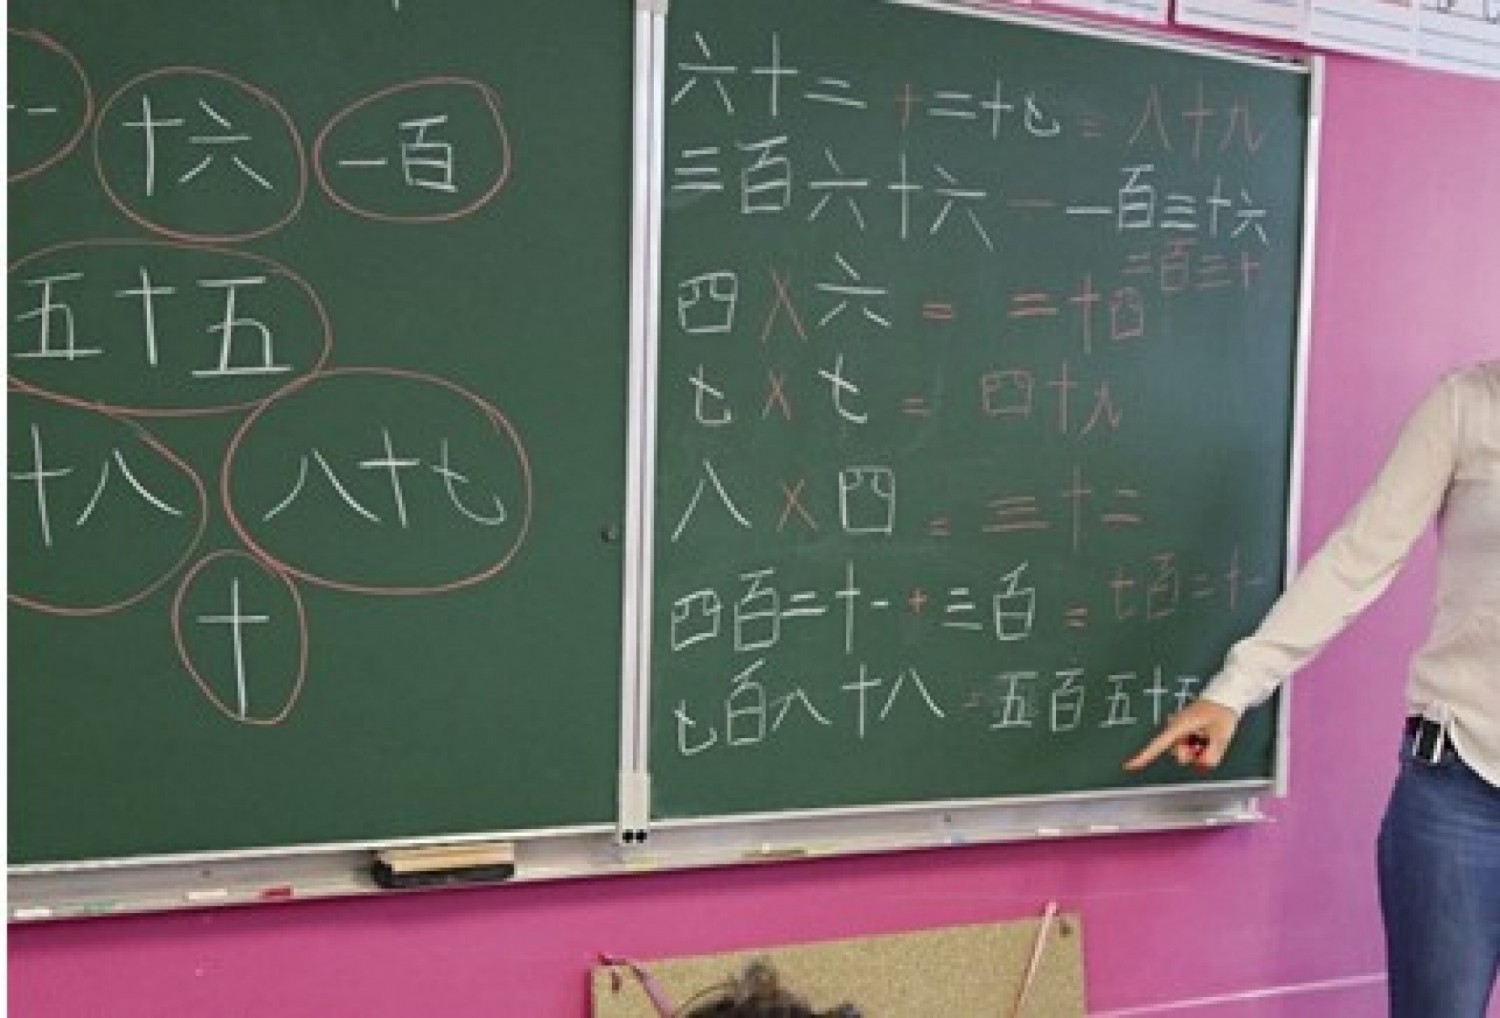 十六 一百
五十五
十八 八十七
十
六十二+二十七=八十九
三百六十六-一百三十六
二百三十
四X六=二十四
七X七=四十九
八X四=三十二
四百二十一+三百=七百二十一
七百八十八-五百五十五